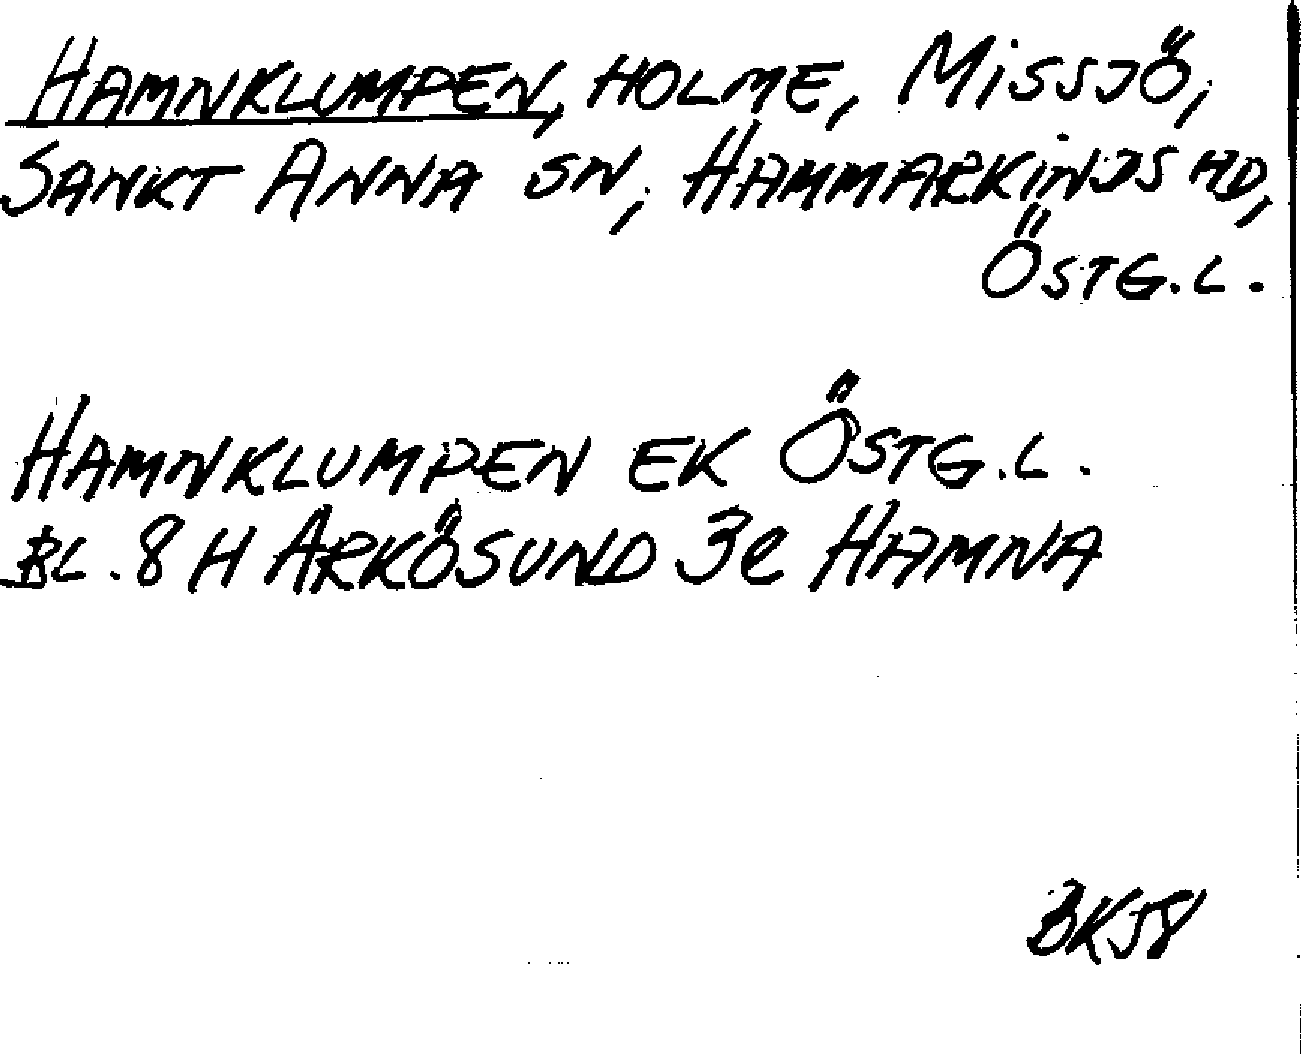 HAMNKLUMPEN, HOLME, MISSJÖ,
SANKT ANNA SN, HAMMARKINDS HD,
ÖSTG.L.
HAMNKLUMPEN EK ÖSTG.L.
BL. 8H ARKÖSUND 3e HAMNA